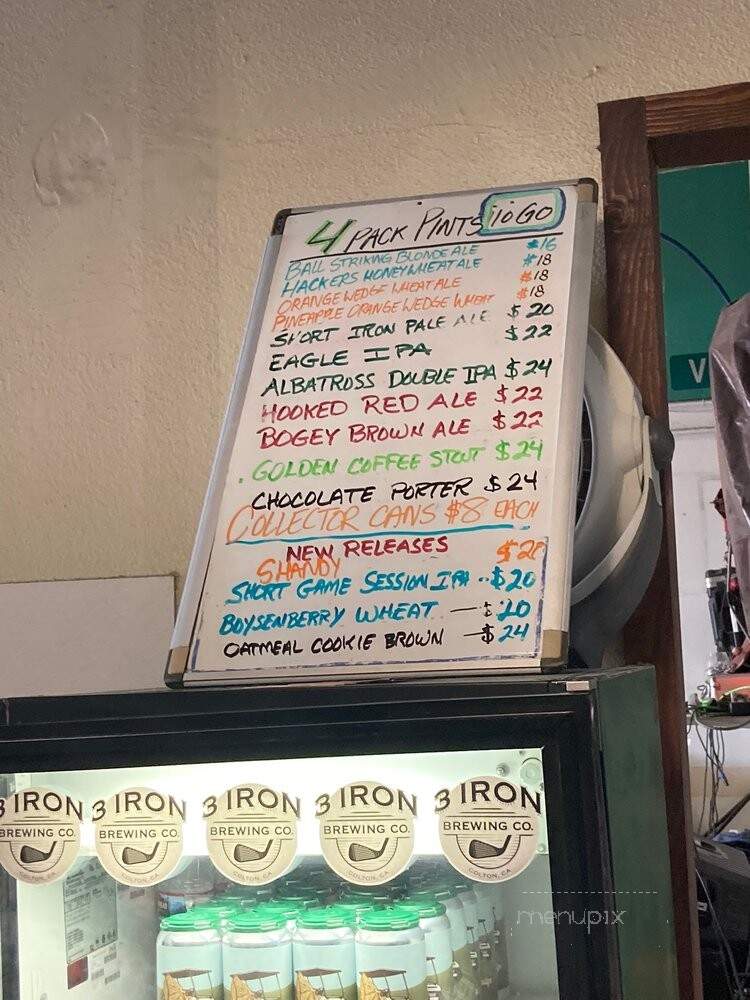 4 PACK PINTS TO GO
BALL STRIKING BLONDE ALE $16
HACKERS HONEY WHEAT ALE $18
ORANGE WEDGE WHEAT ALE $18
PINEAPPLE ORANGE WEDGE WHEAT $18
SHORT IRON PALE ALE $20
EAGLE IPA $22
ALBATROSS DOUBLE IPA $24
HOOKED RED ALE $22
BOGEY BROWN ALE $22
GOLDEN COFFEE STOUT $24
CHOCOLATE PORTER $24
COLLECTOR CANS $8 EACH
NEW RELEASES
SHANDY $20
SHORT GAME SESSION IPA $20
BOYSENBERRY WHEAT — $20
OATMEAL COOKIE BROWN — $24
V
3 IRON 3 IRON 3 IRON 3 IRON 3 IRON
BREWING CO. BREWING CO. BREWING CO. BREWING CO. BREWING CO.
COLTON, CA COLTON, CA COLTON, CA COLTON, CA COLTON, CA
menupix